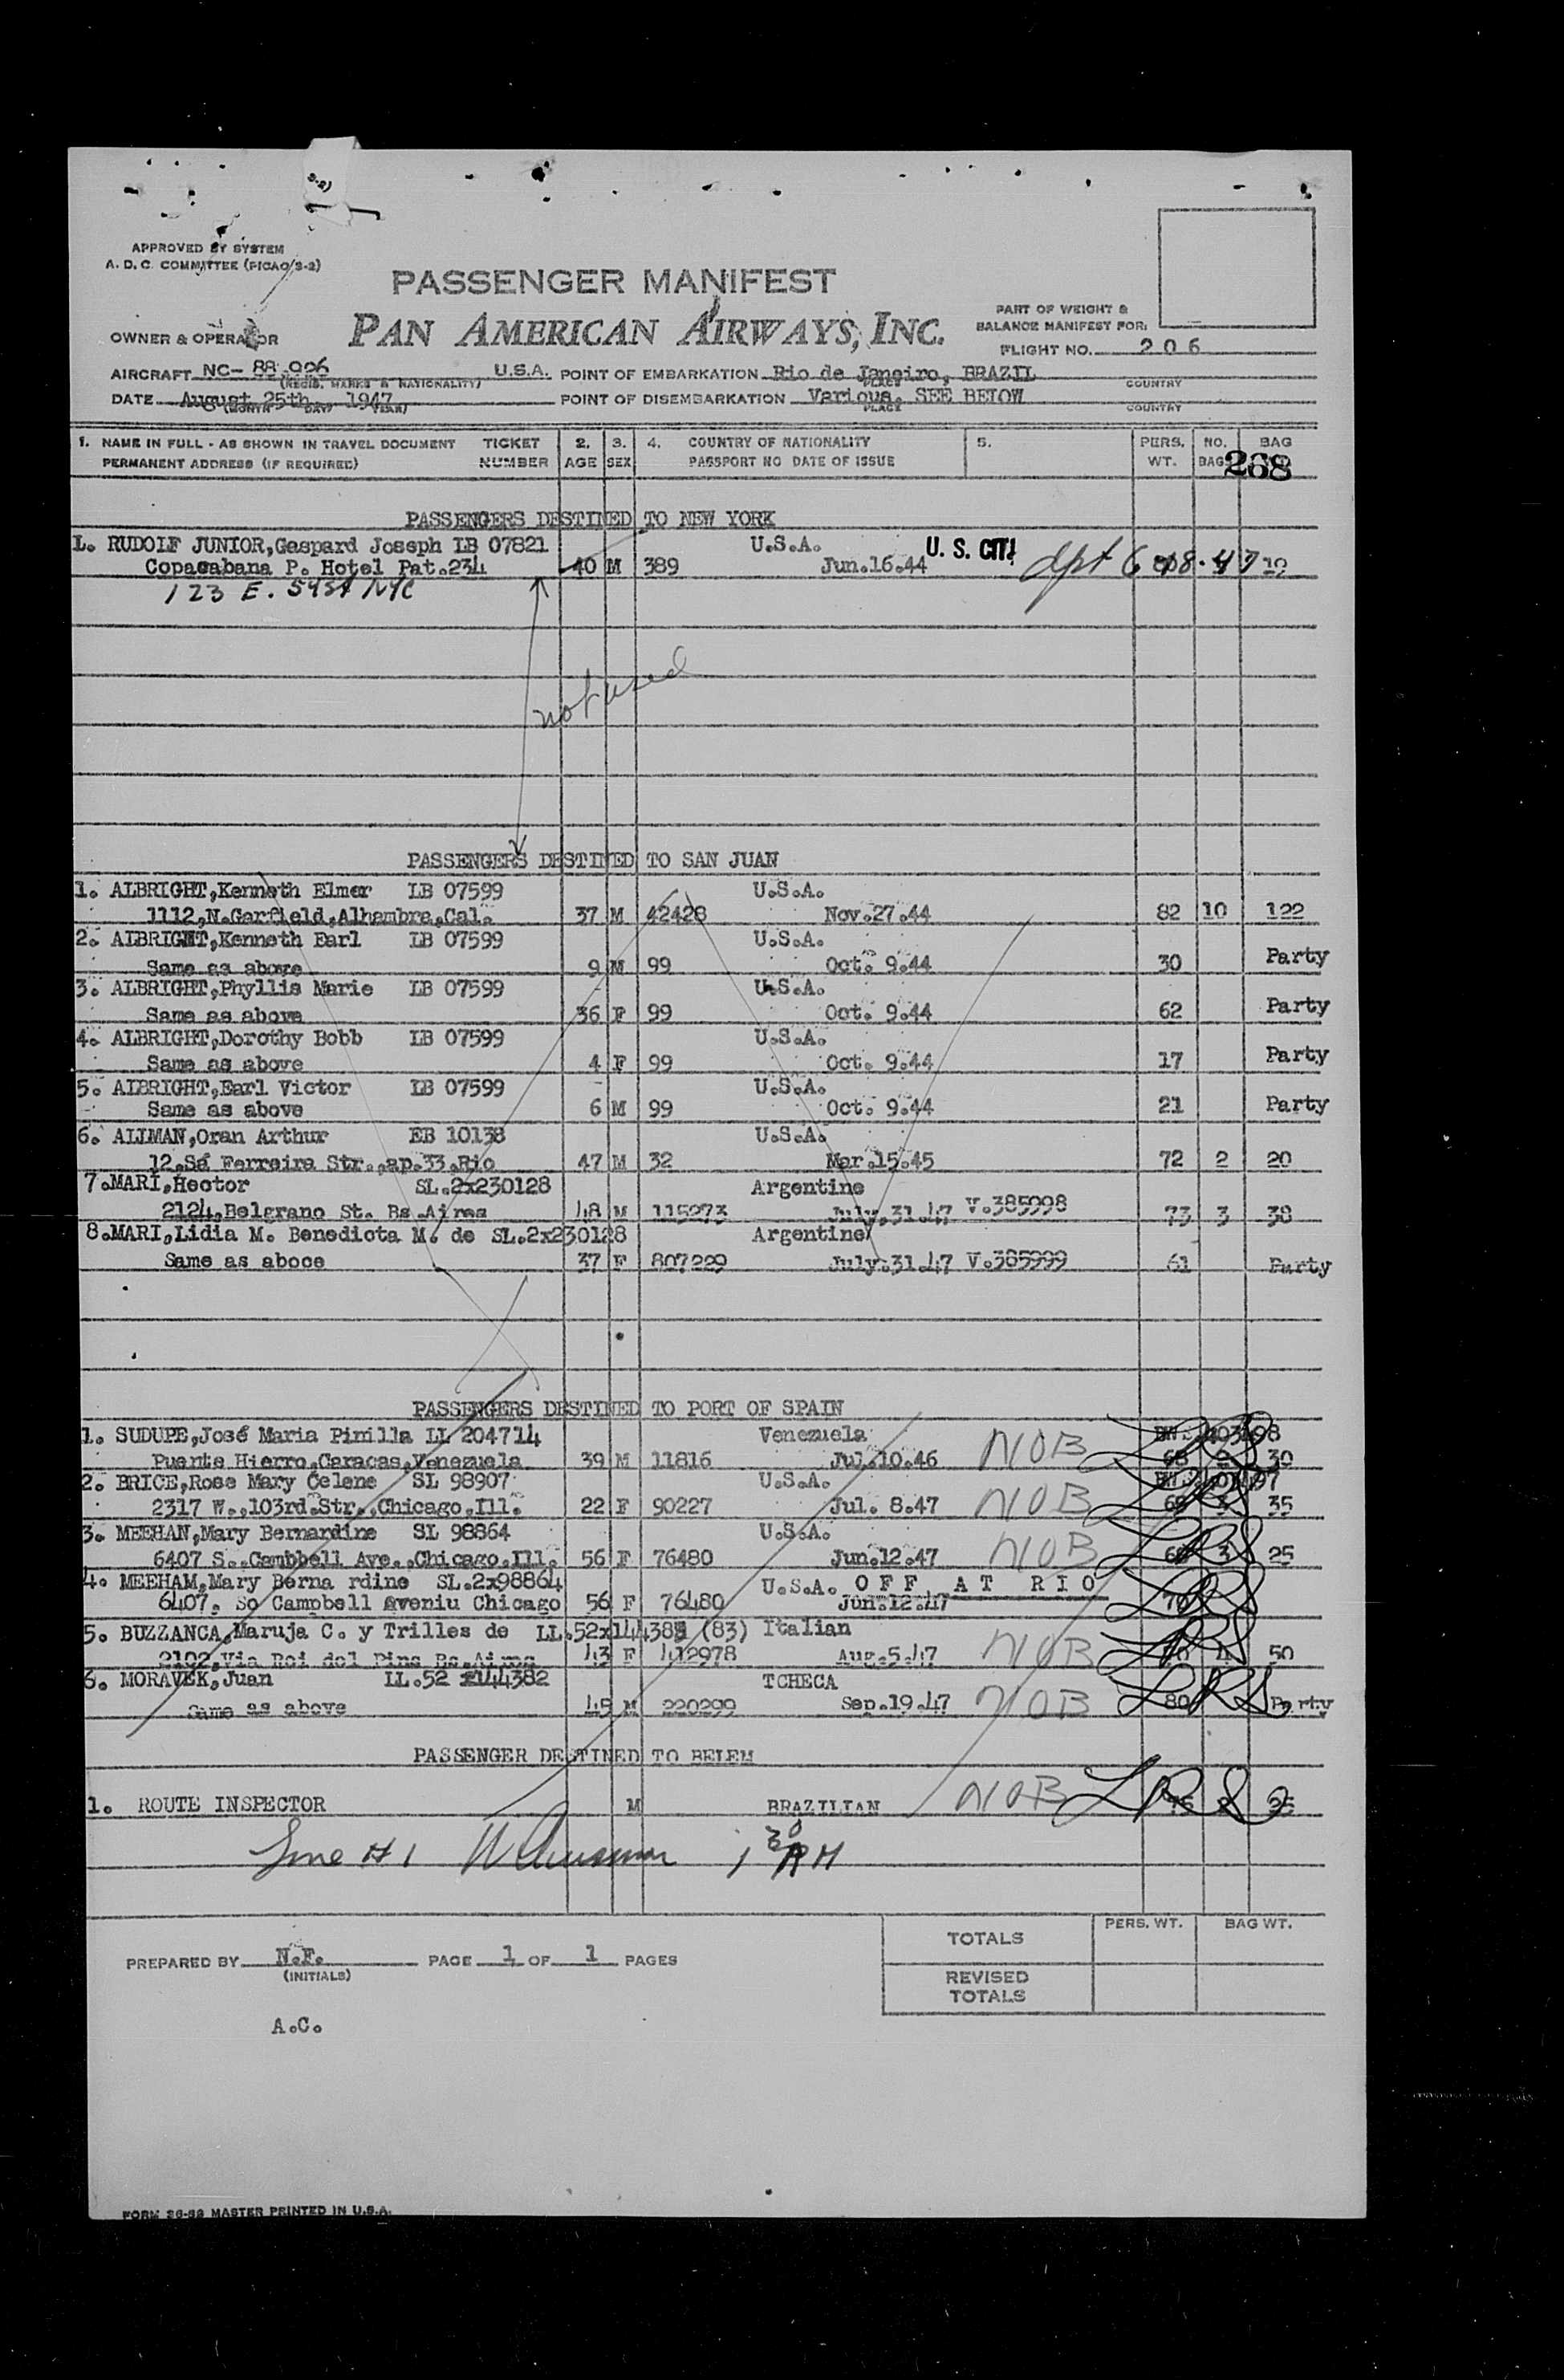 APPROVED BY SYSTEM
A. D. C. COMMITTEE (PICAO/S-2)
PASSENGER MANIFEST
OWNER & OPERATOR PAN AMERICAN AIRWAYS, INC.
PART OF WEIGHT &
BALANCE MANIFEST FOR:
FLIGHT NO. 206
AIRCRAFT NC- 88 906 U.S.A. POINT OF EMBARKATION Rio de Janeiro, BRAZIL
(REGIS. MARKS & NATIONALITY) PLACE COUNTRY
DATE August 25th 1947 POINT OF DISEMBARKATION Various. SEE BELOW
(MONTH DAY YEAR) PLACE COUNTRY
1. NAME IN FULL - AS SHOWN IN TRAVEL DOCUMENT TICKET 2. 3. 4. COUNTRY OF NATIONALITY 5. PERS. NO. BAG
PERMANENT ADDRESS (IF REQUIRED) NUMBER AGE SEX PASSPORT NO DATE OF ISSUE WT. BAG
268
PASSENGERS DESTINED TO NEW YORK
1. RUDOLF JUNIOR,Gaspard Joseph LB 07821 U.S.A. U. S. CIT!
Copacabana P. Hotel Pat.234 40 M 389 Jun.16.44
123 E. 54St NYC
not used
PASSENGERS DESTINED TO SAN JUAN
1. ALBRIGHT,Kenneth Elmer LB 07599 U.S.A.
1112,N.Garfield,Alhambra,Cal. 37 M 42428 Nov.27.44 82 10 122
2. ALBRIGHT,Kenneth Earl LB 07599 U.S.A.
Same as above 9 M 99 Oct. 9.44 30 Party
3. ALBRIGHT,Phyllis Marie LB 07599 U.S.A.
Same as above 36 F 99 Oct. 9.44 62 Party
4. ALBRIGHT,Dorothy Bobb LB 07599 U.S.A.
Same as above 4 F 99 Oct. 9.44 17 Party
5. ALBRIGHT,Earl Victor LB 07599 U.S.A.
Same as above 6 M 99 Oct. 9.44 21 Party
6. ALLMAN,Oran Arthur EB 10138 U.S.A.
12,Sá Ferreira Str.,ap.33,Rio 47 M 32 Mar.15.45 72 2 20
7.MARI,Hector SL.2x230128 Argentine
2124,Belgrano St. Bs.Aires 48 M 115273 July.31.47 V.385998 73 3 38
8.MARI,Lidia M. Benedicta M. de SL.2x230128 Argentine
Same as aboce 37 F 807229 July.31.47 V.385999 61 Party
PASSENGERS DESTINED TO PORT OF SPAIN
1. SUDUPE,José Maria Pinilla LL 204714 Venezuela
Puente Hierro,Caracas,Venezuela 39 M 11816 Jul.10.46 NOB 68 2 30
2. BRICE,Rose Mary Celene SL 98907 U.S.A.
2317 W.,103rd.Str.,Chicago,Ill. 22 F 90227 Jul. 8.47 NOB 35
3. MEEHAN,Mary Bernardine SL 98864 U.S.A.
6407 S..Cambbell Ave.,Chicago,Ill. 56 F 76480 Jun.12.47 NOB 3 25
4. MEEHAM,Mary Berna rdine SL.2x98864 U.S.A. OFF AT RIO
6407. So Campbell aveniu Chicago 56 F 76480 Jun.12.47
5. BUZZANCA,Maruja C. y Trilles de LL.52x144382 (83) Italian
2102,Via Rei del Pins Bs.Aires 43 F 412978 Aug.5.47 NOB 50
6. MORAVEK,Juan LL.52 x144382 TCHECA
Same as above 48 M 220299 Sep.19.47 NOB 80 Party
PASSENGER DESTINED TO BELEM
1. ROUTE INSPECTOR M BRAZILIAN NOB
Line #1 1 30 AM
TOTALS PERS. WT. BAG WT.
PREPARED BY N.F. PAGE 1 OF 1 PAGES
(INITIALS)
REVISED
TOTALS
A.C.
FORM 26-52 MASTER PRINTED IN U.S.A.